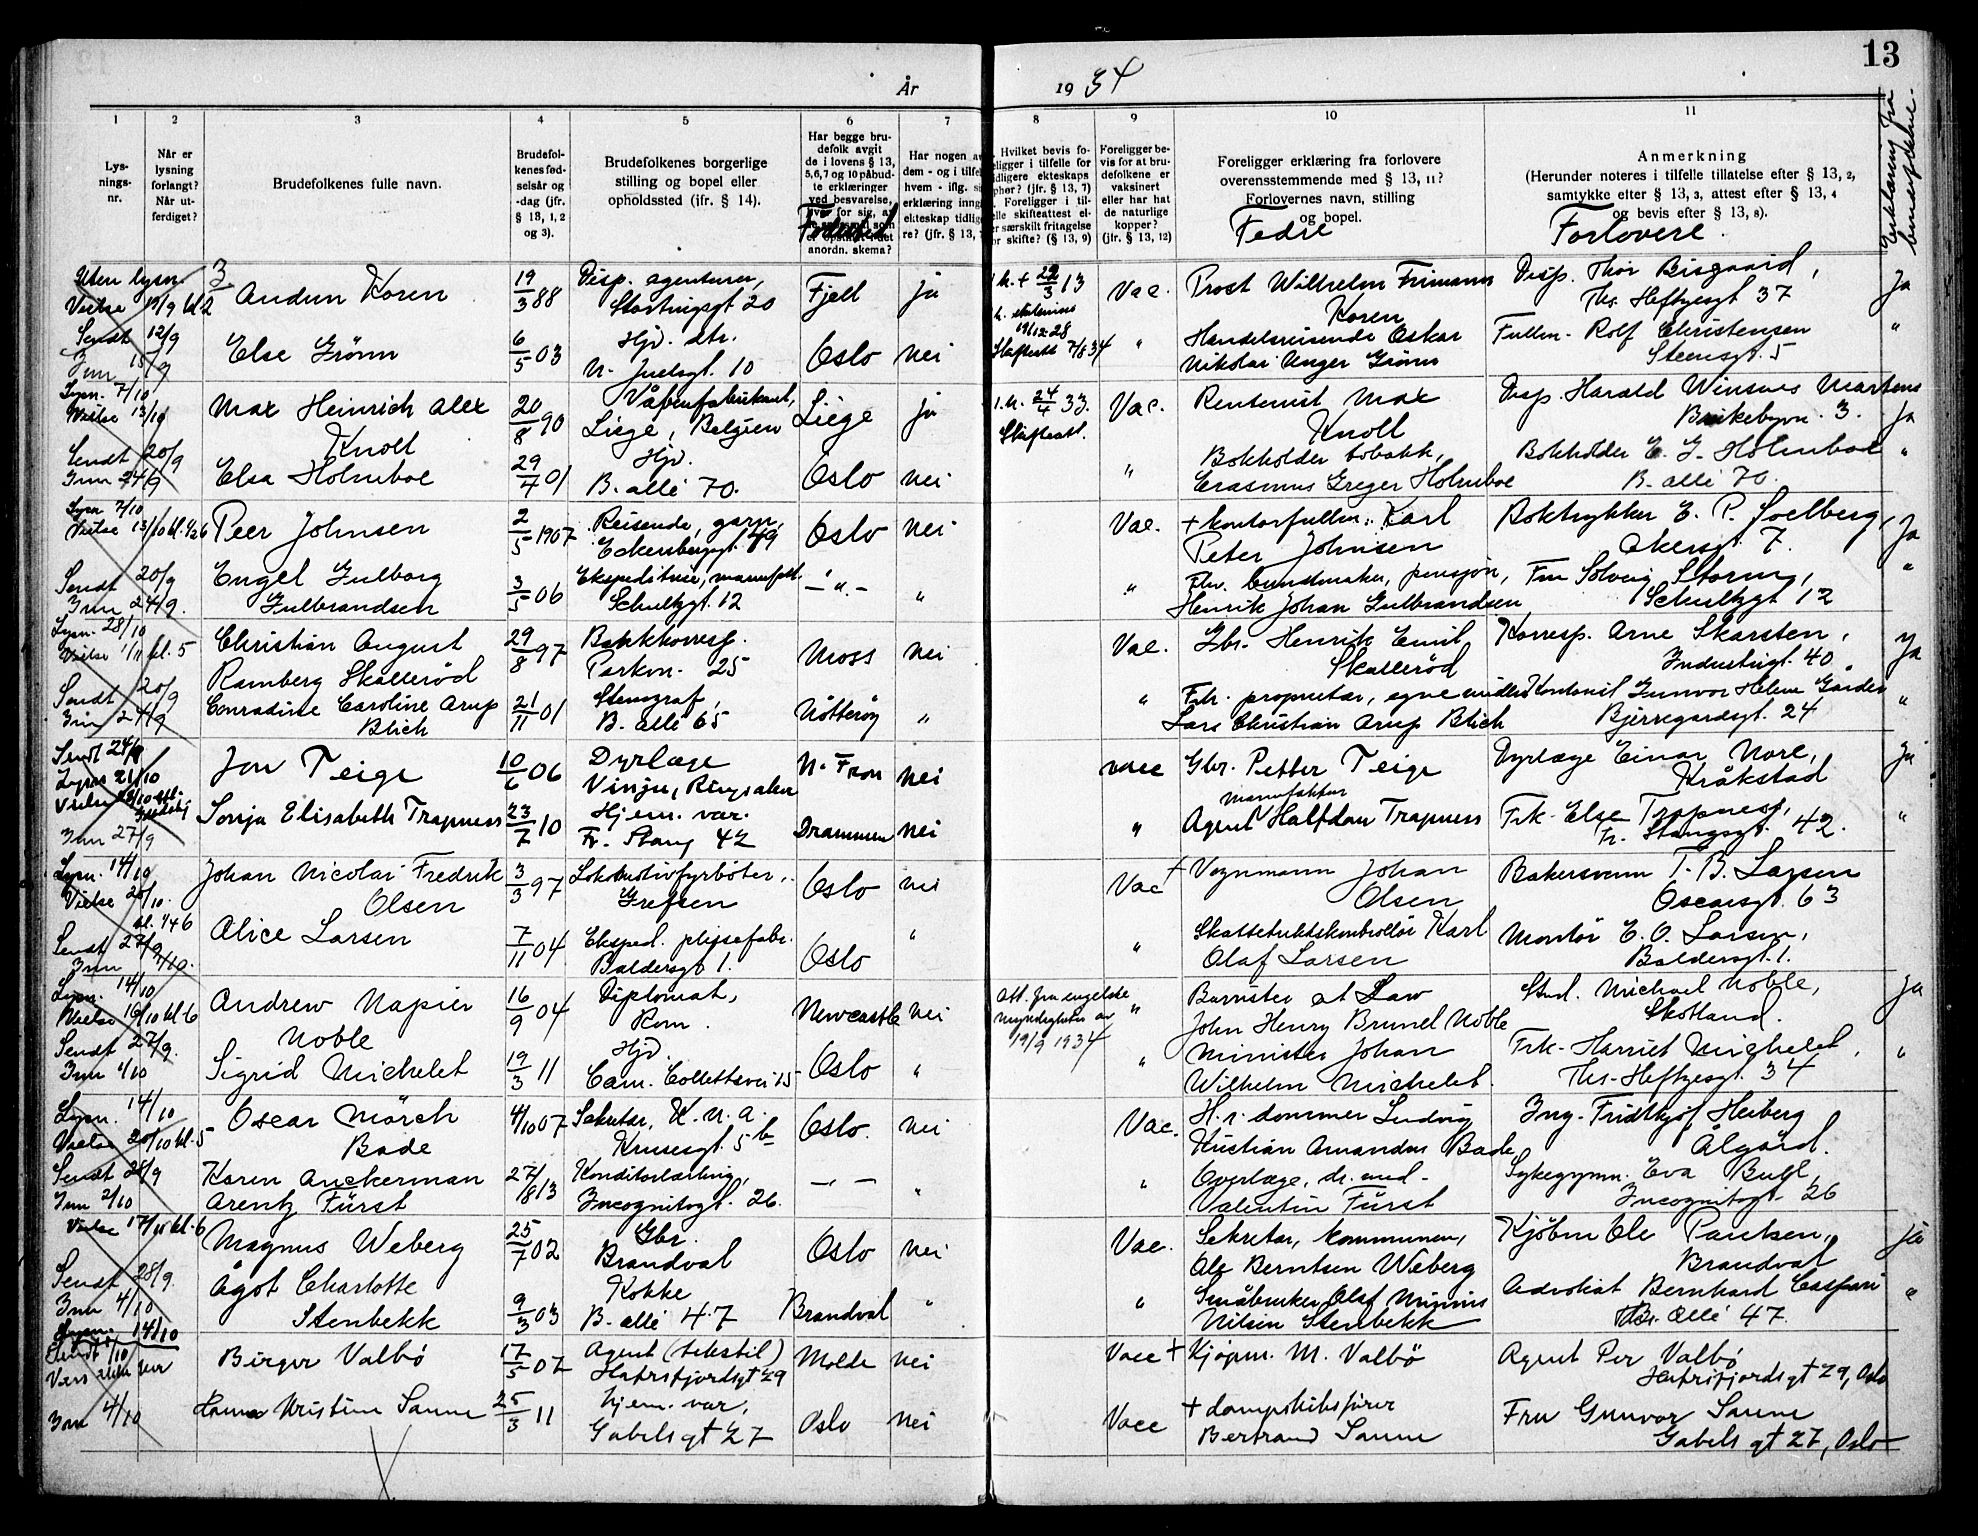 13
År
19 34
1
2
3
4
5
6
7
8
9
10
11
Lys-
nings-
nr.
Når er
lysning
forlangt?
Når ut-
ferdiget?
Brudefolkenes fulle navn.
Brudefol-
kenes fød-
selsår og
-dag (jfr.
§ 13, 1, 2
og 3).
Brudefolkenes borgerlige
stilling og bopel eller
opholdssted (jfr. § 14).
Har begge bru-
defolk avgit
de i lovens § 13,
5,6,7 og 10 påbud-
te erklæringer
ved besvarelse,
hver for sig, av
anordn. skema?
Fødested
Har nogen av
dem - og i tilfelle
hvem - iflg. si
erklæring inng
ekteskap tidlig
re? (jfr. § 13,
Hvilket bevis fo-
religger i tilfelle for
tidligere ekteskaps
ophør? (jfr. § 13, 7)
Foreligger i til-
felle skifteattest el-
ler særskilt fritagelse
for skifte? (§ 13, 9)
Foreligger be-
vis for at bru-
defolkene er
vaksinert
eller har hat
de naturlige
kopper?
(jfr. § 13, 12)
Foreligger erklæring fra forlovere
overensstemmende med § 13, 11?
Forlovernes navn, stilling
og bopel.
Fedre
Anmerkning
(Herunder noteres i tilfelle tillatelse efter § 13, 2,
samtykke efter § 13, 3, attest efter § 13, 4
og bevis efter § 13, 8).
Forlovere
Erklæring fra
brudefolkene.
Uten lysn.
Vielse 13/9 kl 2
3
Audun Koren
19/3 88
Disp. agenturer,
Stortingsgt 20
Fjell
ja
1. h. + 22/3 13
19/12-28
Skifteatt 7/8 34
Vac.
Prost Wilhelm Frimann
Koren
Disp. Thor Bisgaard,
Ths. Heftyesgt 37
Ja
Sendt 12/9
Inn 15/9
Else Grönn
6/5 03
Hjv. dtr.
N. Juelsgt. 10
Oslo
nei
"
Handelsreisende Oskar
Nikolai Unger Grönn
Fullm. Rolf Christensen
Steensgt. 5
"
Lysn. 7/10
Vielse 13/10
Max Heinrich Alex
Knoll
20/8 90
Våbenfabrikant,
Liége, Belgien
Liége
ja
1. h. 24/4 33.
Skifteatt.
Vac.
Rentenist Max
Knoll
Disp. Harald Winsnes Martens
Ja
Sendt 20/9
Inn 24/9
Elsa Holmboe
29/7 01
Hjv.
B. allé 70.
Oslo
nei
"
Bokholder tobakk,
Erasmus Greger Holmboe
Bokholder E. G. Holmboe
B. allé 70.
"
Lysn 7/10
Vielse 13/10 kl. 1/2 6
Peer Johnsen
2/5 1907
Reisende, garn,
Eckersbergsgt. 49
Oslo
nei
Vac.
+ kontorfullm. Karl
Peter Johnsen
Boktrykker E. P. Soelberg,
Akersgt. 7.
Ja
Sendt 20/9
Inn 24/9.
Engel Gulborg
Gulbrandsen
3/5 06
Ekspeditrise, manufakt.
Schultzgt. 12
— " —
"
"
Fhv. bundmaker, pensjon,
Henrik Johan Gulbrandsen
Fru Solveig Storm,
Schultzgt 12
"
Lysn. 28/10
Vielse 1/11 kl. 5
Christian August
Ramberg Skallerød
29/8 97
Bankkorresp.
Parkvn. 25
Moss
nei
Vac.
Gbr. Henrik Emil
Skallerød
Korresp. Arne Skarsten,
Industrigt. 40.
Ja
Sendt 20/9
Inn 24/9
Conradine Caroline Arup
Blich
21/11 01
Stenograf,
B. allé 65
Nötteröy
"
"
Fhv. proprietær, egne midler
Lars Christian Arup Blich
Kontorist Gunvor Helene Garder
Bjerregardsgt. 24
"
Sendt 24/9
Lyses 21/10
Jon Teige
10/6 06
Dyrlæge
Vinju, Ringsaker
N. Fron
nei
vacc
Gbr. Petter Teige
Dyrlæge Einar Nore,
Kråkstad
ja
Inn 27/9
Sonja Elisabeth Trapness
23/7 10
Hjem. var.
Fr. Stang 42
Drammen
nei
"
manufaktur
Agent Halfdan Trapness
Frk. Else Trapness,
Fr. Stangsgt. 42.
"
Lysn. 14/10
Vielse 20/10.
kl. 1/4 6
Johan Nicolai Fredrik
Olsen
3/3 97
Lokomotivfyrböter,
Grefsen
Oslo
nei
Vac
+ Vognmann Johan
Olsen
Bakersvenn T. B. Larsen
Oscarsgt. 63
Sendt 27/9
Inn 2/10.
Alice Larsen
7/11 04
Eksped. plissefabr.
Baldersgt 1.
Oslo
"
"
Skattetrekkskontrollør Karl
Olaf Larsen
Montör E. O. Larsen,
Baldersgt. 1.
Lysn. 14/10
Vielse 16/10 kl. 6
Andrew Napier
Noble
16/9 04
Diplomat,
Rom.
Newcastle
nei
Att. fra engelske
myndigheter av
19/9 1934
"
Barrister at Law
John Henry Brunel Noble
Stud. Michael Noble,
Skotland.
Ja
Sendt 27/9.
Inn 1/10
Sigrid Michelet
19/3 11
Hjv.
Cam. Collettsvei 15
Oslo
"
"
Minister Johan
Wilhelm Michelet.
Frk. Harriet Michelet,
Ths. Heftyesgt. 34
"
Lysn. 14/10
Vielse 20/10 kl. 5
Oscar Mörch
Bade
4/10 07
Sekretær, K. N. A.
Krusesgt. 5 b
Oslo.
nei
Vac.
H. r. dommer Ludvig
Kristian Amandus Bade
Ing. Fridthjof Heiberg
Ålgård.
Sendt 28/9
Inn 2/10
Karen Anckerman
Arentz Fürst
27/8 13
Konditorlærling,
Incognitogt. 26.
— " —
"
"
Overlæge, dr. med.
Valentin Fürst
Sykegymn. Eva Bull,
Incognitogt. 26
Vielse 17/10 kl. 6
Magnus Weberg
25/7 02
Gbr.
Brandval
Oslo
nei
Vac.
Sekretær, kommunen,
Ole Berntsen Weberg
Kjøbm Ole Paulsen,
Brandval
ja
Sendt 28/9.
Inn 4/10
Ågot Charlotte
Stenbekk
9/3 03
Kokke
B. allé 47
Brandval
"
"
Småbruker Olaf Minius
Nilsen Stenbekk
Advokat Bernhard Caspari
Br. Allé 47.
"
Lysn. 14/10
Sendt 1/10
Birger Valbö
17/5 07
Agent (tekstil)
Hafrsfjordsgt 29
Molde
nei
Vacc
+ Kjøpm. M. Valbö
Agent Per Valbö
Hafrsfjordsgt 29, Oslo
Inn 4/10
Hanna Kristine Sanne
25/3 11
hjem. var,
Gabels gt 27
Oslo
nei
Vacc
+ dampskibsfører
Bertrand Sanne
Fru Gunvor Sanne
Gabels gt 27, Oslo